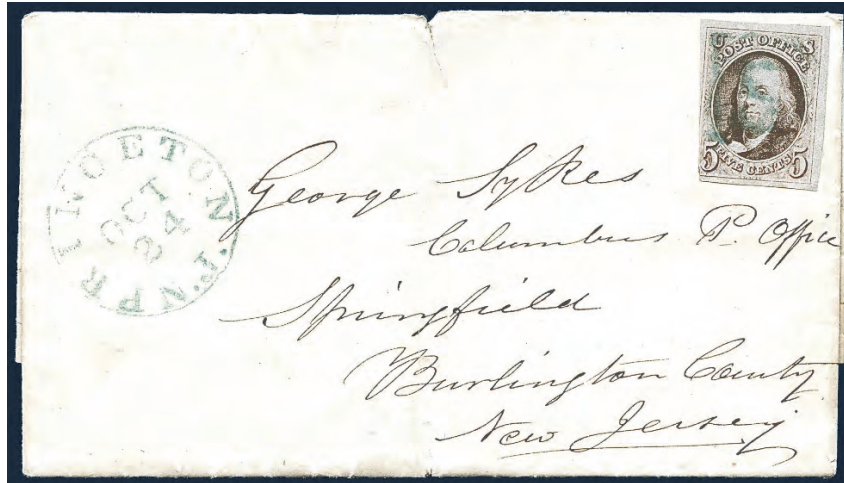 U S
POST OFFICE
5 FIVE CENTS 5
PRINCETON
OCT
24
George Sykes
Columbus P. Office
Springfield
Burlington County
New Jersey